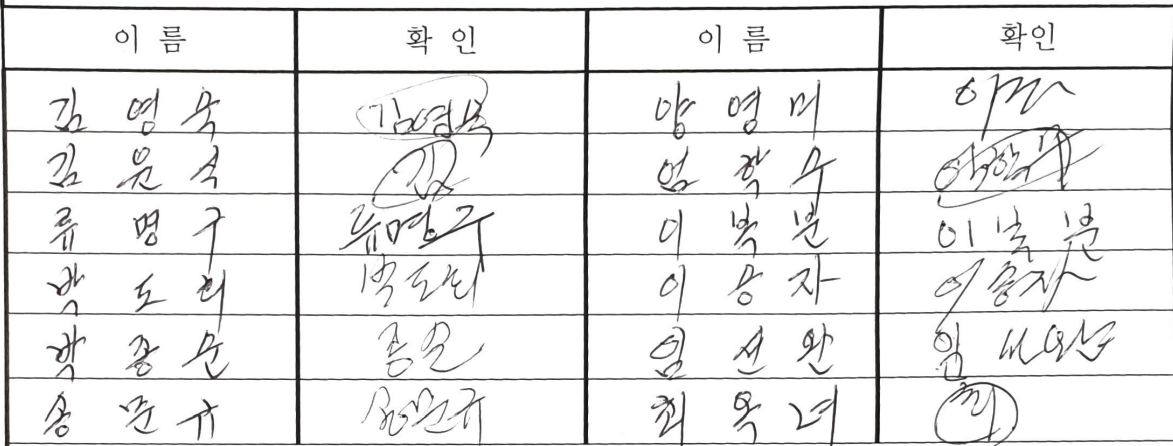 이 름 확 인 이 름 확인
김 영 욱 김영욱 양 영 미
김 윤 식 김 엄 학 수 엄학수
류 명 구 류명구 이 복 분 이 복 분
박 도 희 박도희 이 승 자 이승자
박 종 문 종문 임 선 완 임 선완
송 문 규 송문규 최 옥 녀 최